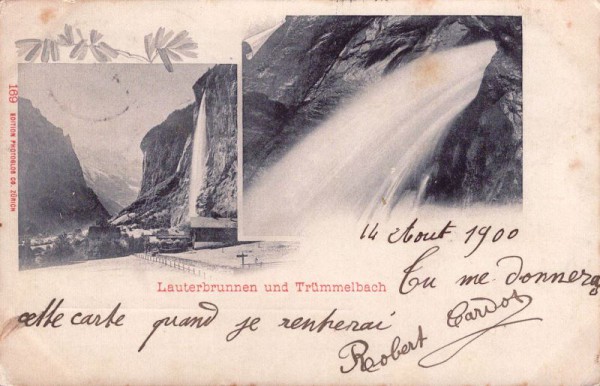 169 EDITION PHOTOGLOB CO. ZÜRICH
Lauterbrunnen und Trümmelbach
14 Aout 1900
Tu me donneras
cette carte quand je rentrerai
Robert Cardot